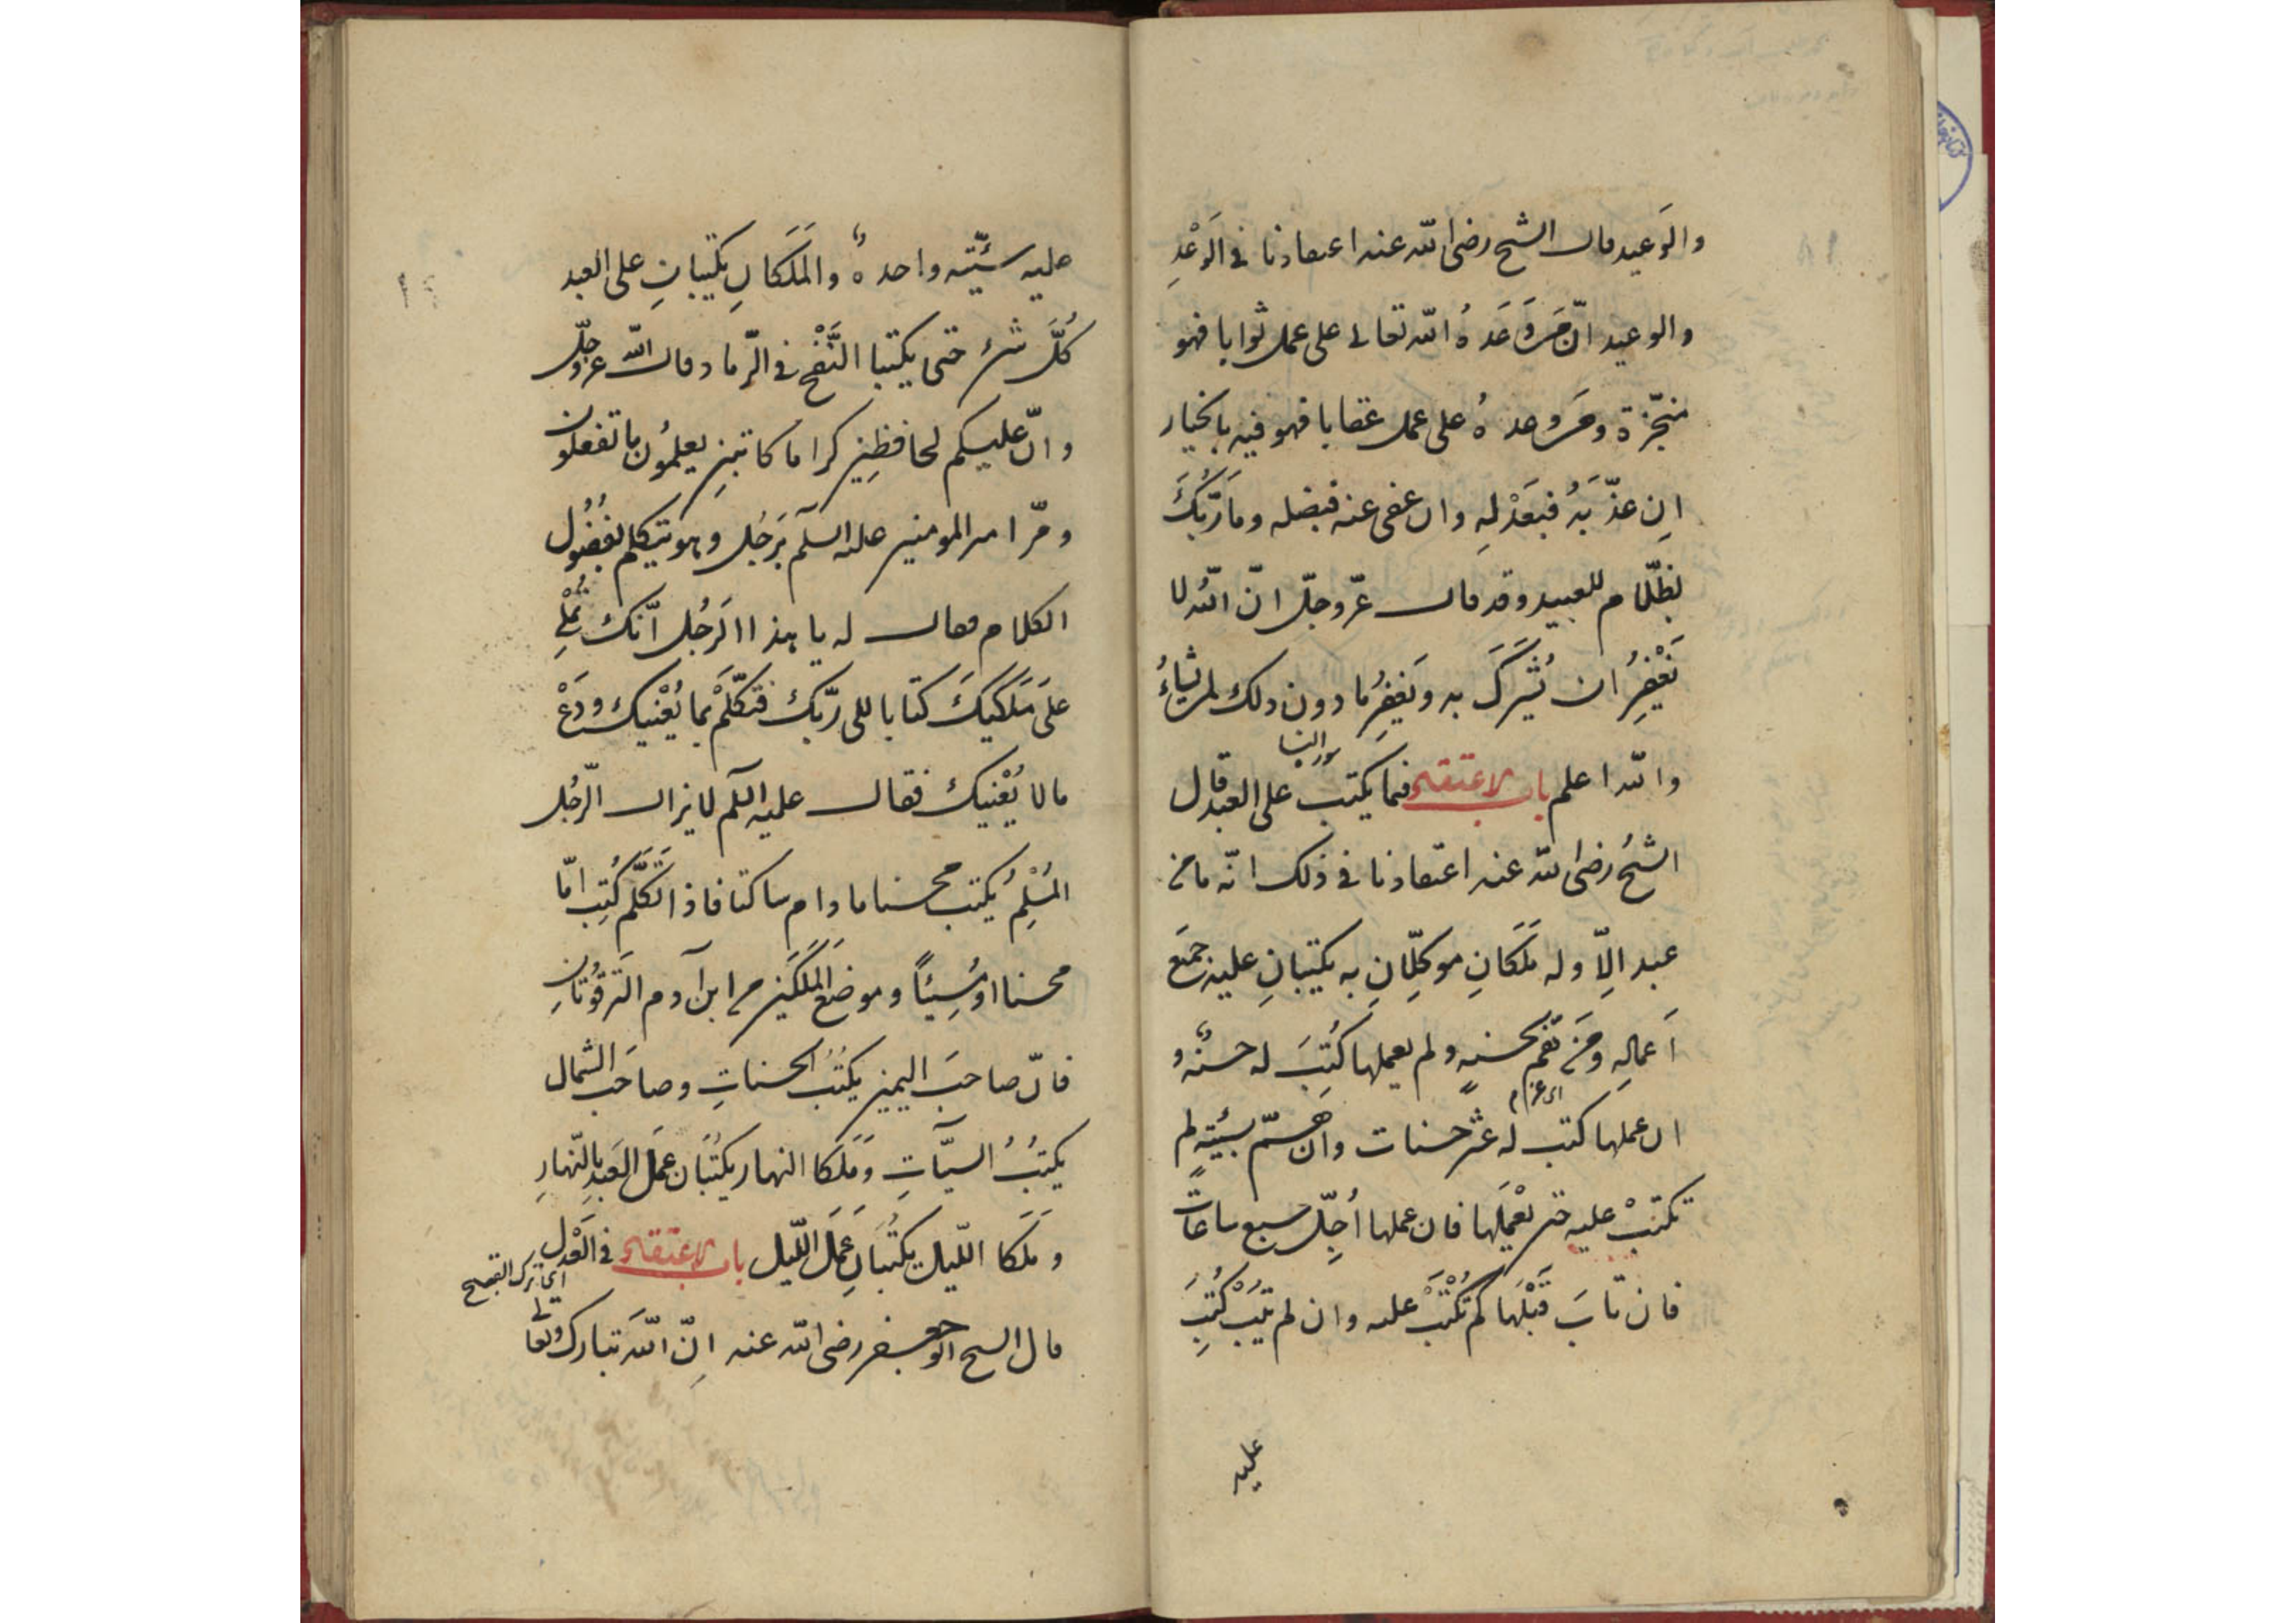 والوَعيد قال الشيخ رضى الله عنه اعتقادنا فى الوَعْدِ
والوعيد انّ مَن وَعَدهُ الله تعالى على عمل ثوابا فهو
منجّزة ومَن وعدهُ على عمل عقابا فهو فيه بالخيار
اِن عذّبَهُ فبَعَدْلِهِ وان عفى عنه فبفضله ومَا رَبُّكَ
بظلّام للعبيد وقد قال عزّ وجلّ انّ الله لا
يَغْفِرُ ان يُشْرَكَ به ويَغفِرُ ما دون ذلك لمن يشاءُ
سورة النسا
والله اعلم باب الاعتقاد فيما يكتب على العبد قال
الشيخُ رضى الله عنه اعتقادنا فى ذلك انّه ما من
عبد اِلّا وله مَلَكانِ موكّلانِ به يكتبانِ عليه جميَع
اَعمالِهِ ومَن هَمّ بحسنةٍ ولم يعملها كُتِبَ له حسنةٌ و
ان عملها كتب له عشر حسنات وان همّ بسَيّئةٍ لم
اى عزم
تكتبْ عليه حتى يعْمَلَها فان عملها اُجّل سبع ساعات
فان تابَ قَبْلَها لم تُكْتَبْ عليه وان لم يَتُبْ كُتِبَ
عليه
عليه سيّئة واحدةٌ والمَلَكانِ يكتبانِ على العبد
كُلَّ شىء حتى يكتبا النَّفْخ فى الرّماد قال الله عزّ وجلّ
وانّ عليكم لحافظِين كراما كاتبينِ يعلمُون ما تفعلون
ومرّ امير المومنين عليه السلم بَرجُل وهو يتكلم بفُضُول
الكلام فقال له يا هذا الرَجُل انّك تُمْلِى
عَلَى مَلَكَيكَ كتابا الى ربّك فتكلَّمْ بما يُعْنيك ودَعْ
ما لا يُعْنيك فقال عليه السلم لا يزال الرّجُل
المُسْلِمُ يُكتب محسنا ما دام ساكتا فاذا تَكلَّم كُتِبَ امّا
محسنا او مُسِيئًا وموضعُ المَلَكَين من ابن آدم التَرقُوَتانِ
فانّ صاحبَ اليمين يكتُبُ الحسناتِ وصاحَب الشمال
يكتبُ السيّآتِ ومَلَكا النهار يكتُبان عَمَل العَبدِ بالنّهارِ
ومَلَكا اللّيل يكتُبانِ عَمَلَ اللّيل باب الاعتقاد فى العَدْلِ
اى ترك القبيح
قال الشيخ ابو جعفر رضى الله عنه اِنّ الله تبارك وتعالى